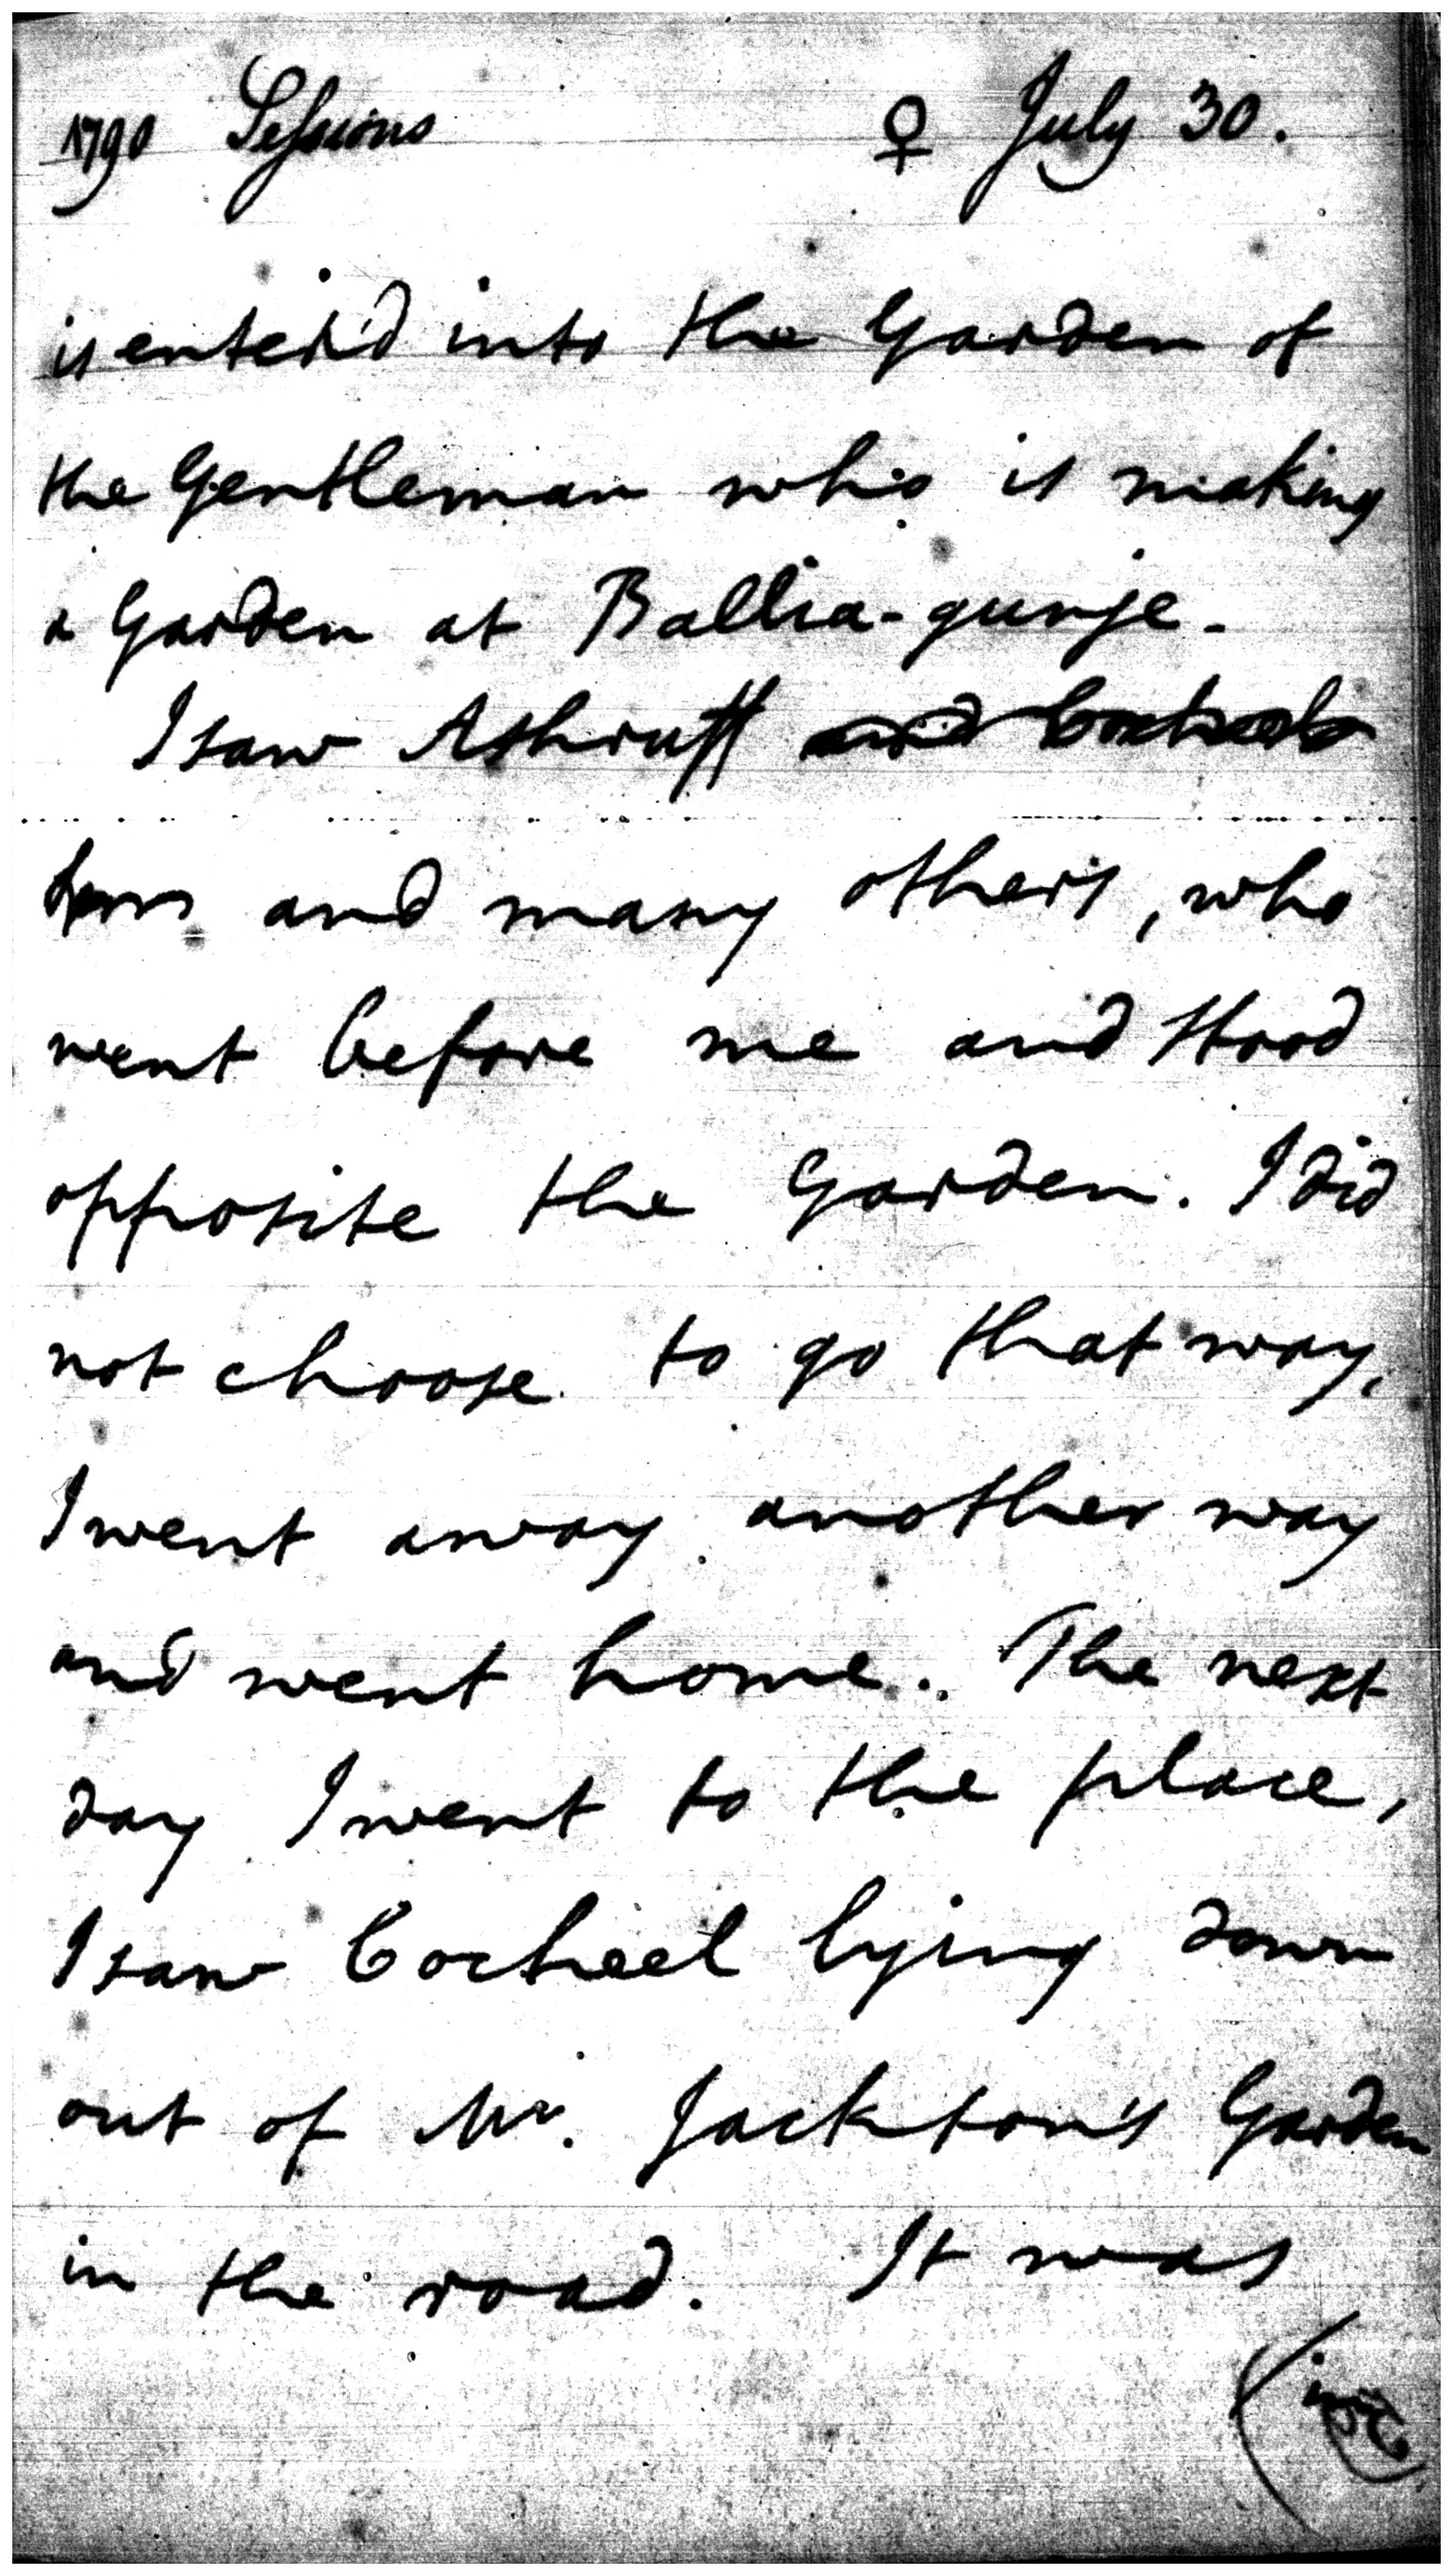 1790 Sessions ♀ July 30.
is enter'd into the Garden of
the Gentleman who is making
a Garden at Ballia-gunje.
I saw Ashruff and
and many others, who
went before me and stood
opposite the Garden. I did
not choose to go that way,
I went away another way
and went home. The next
day I went to the place,
I saw Cocheel lying down
out of Mr. Jackson's Garden
in the road. It was
(in